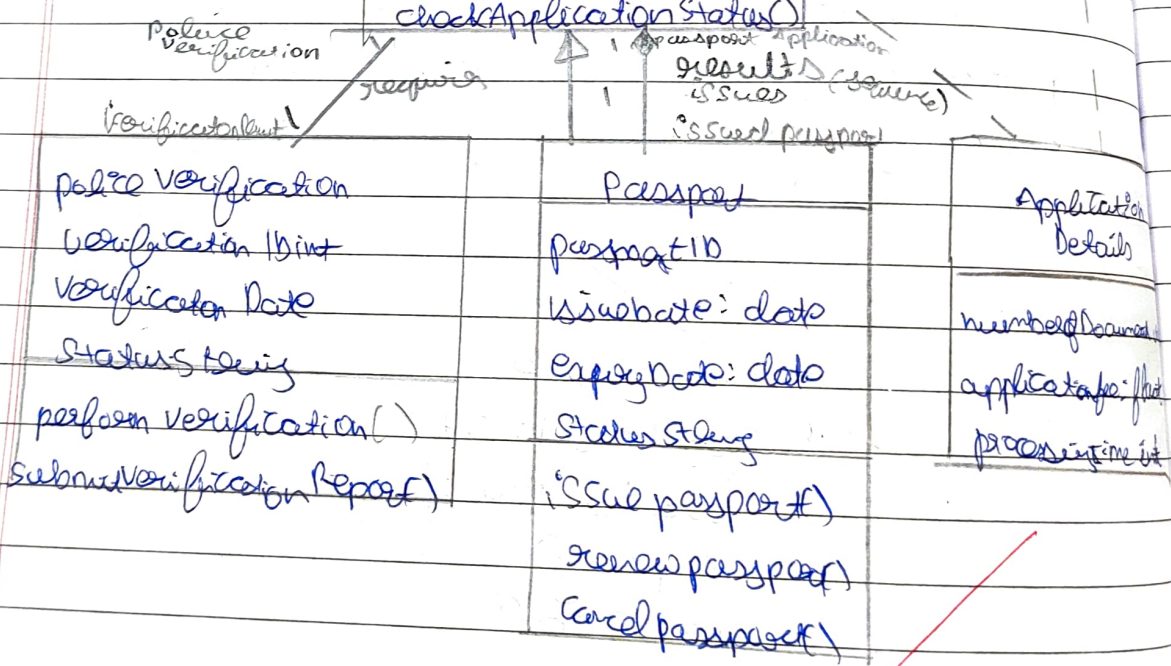 checkApplicationStatus()
Police
verification
1
passport Application
results (sequence)
require
issues
1
issued passport
1
Police Verification
verification ID int
Verification Date
Status String
perform verification()
submitVerificationReport()
Passport
passport ID
issueDate: date
expiryDate: date
Status String
issue passport()
renew passport()
Cancel passport()
Application
Details
numberofDocument
applicationfee: float
processingTime int